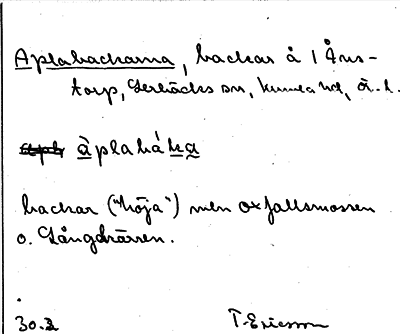 Aplabackarna, backar å 1 Åns-
torp, Lerbäcks sn, Kumla hd, Ö. l.
àplabáka
backar ("höja") mellan Oxfallsmossen
o. Långkärren.
30.2
T. Ericsson